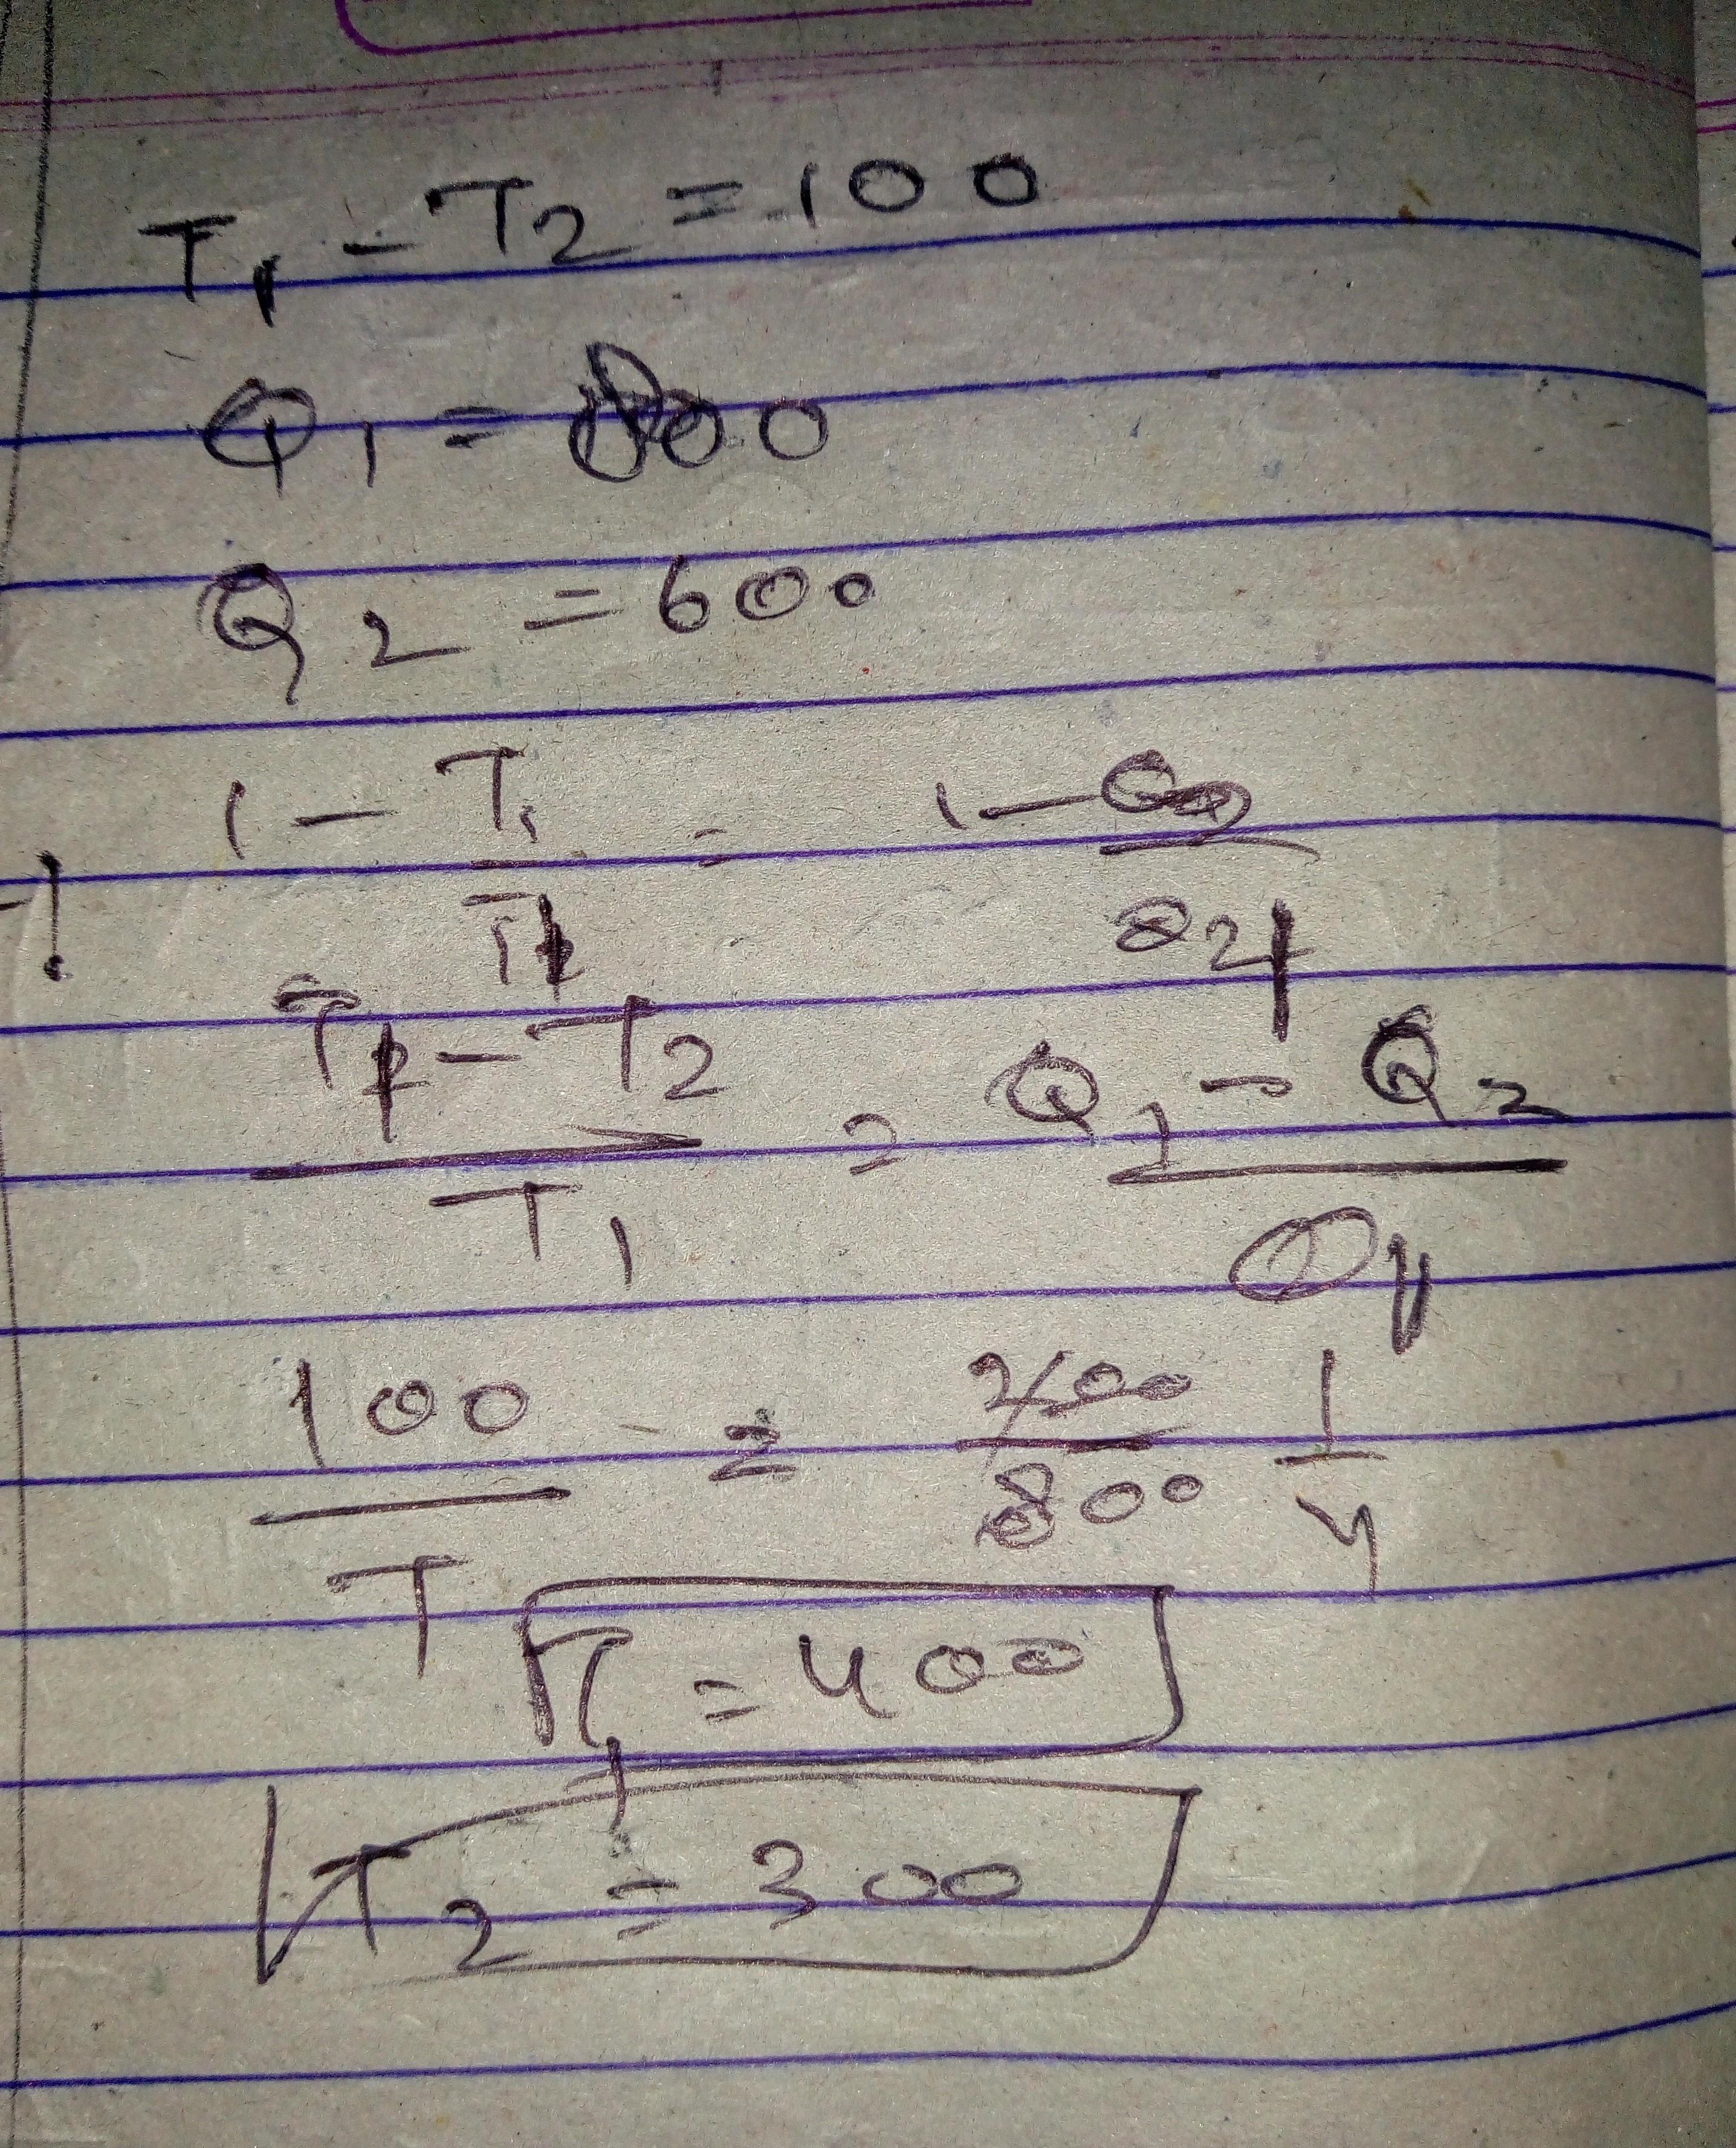 T₁ - T₂ = 100
Q₁ = 800
Q₂ = 600
1 - T₁ / T₁ = 1 - Q₂ / Q₁
T₁ - T₂ / T₁ = Q₁ - Q₂ / Q₁
100 / T = 200 / 800 1 / 4
T₁ = 400
T₂ = 300